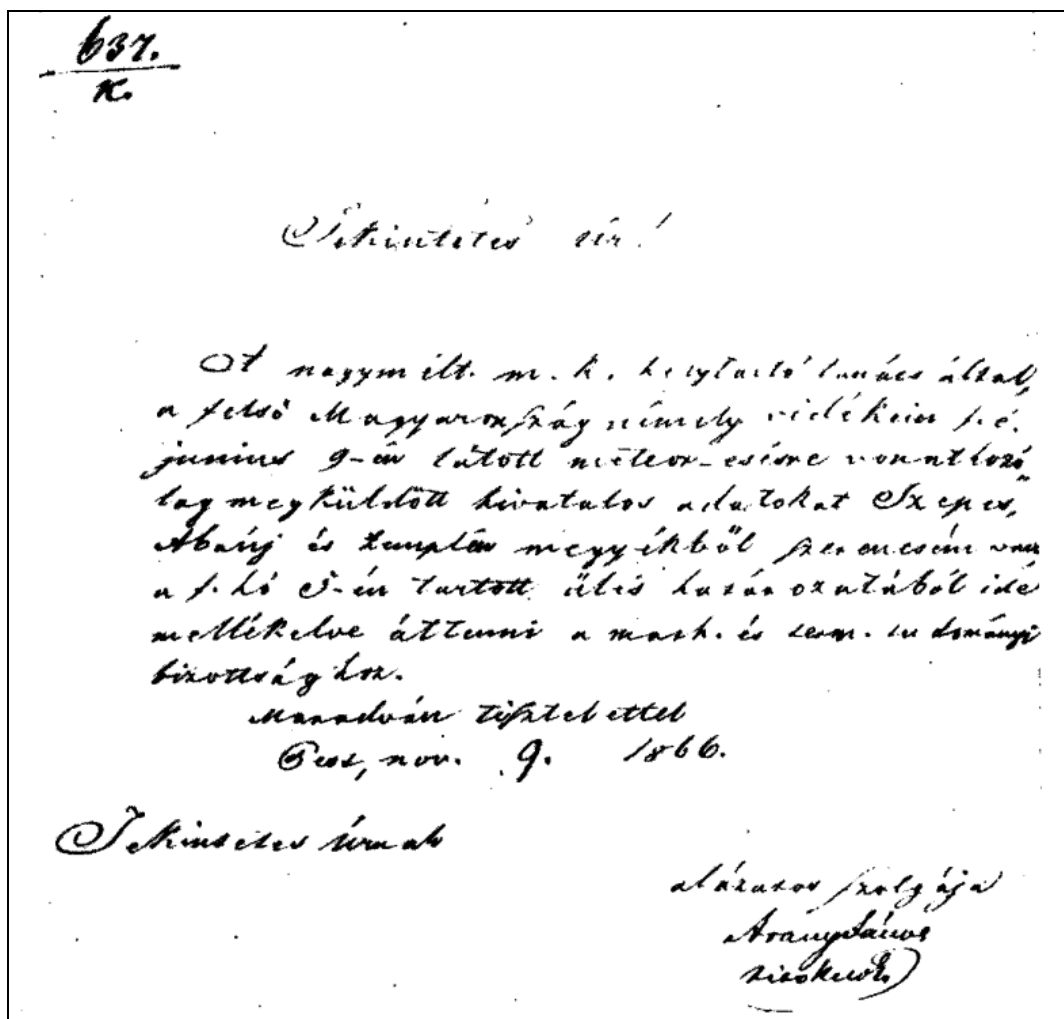 637.
K.
Tekintetes úr!
A nagymélt. m. k. helytartó tanács által,
a felső Magyarország némely vidékein f. é.
junius 9-én látott meteor-esésre vonatkozó
lag megküldött hivatalos adatokat Szepes,
Abaúj és Zemplén megyékből szerencsém van
a f. hó 5-én tartott ülés határozatából ide
mellékelve áttenni a math. és term. tudományi
bizottsághoz.
Maradván tisztelettel
Pest, nov. 9. 1866.
Tekintetes úrnak
alázatos szolgája
Arany János
titoknok